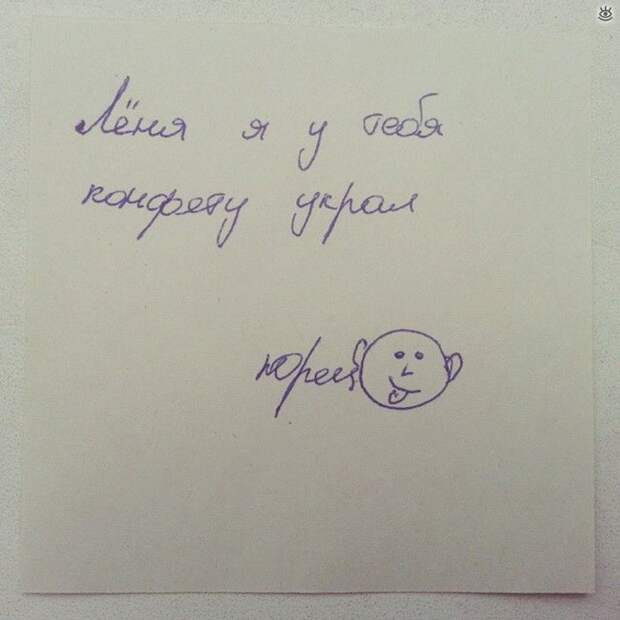 Лёня я у тебя
конфету украл
юрец